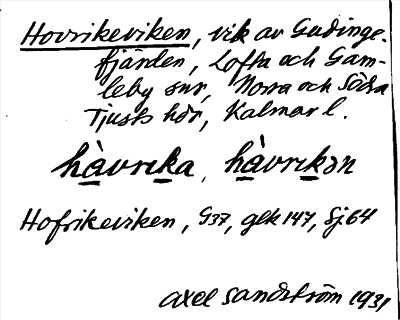 Hovrikeviken, vik av Gudinge-
fjärden, Lofta och Gam-
leby snr, Norra och Södra
Tjusts hdr, Kalmar l.
hàvrıka, hàvrıkən
Hofrikeviken, G37, gek 147, Sj 64
Axel Sandström 1931